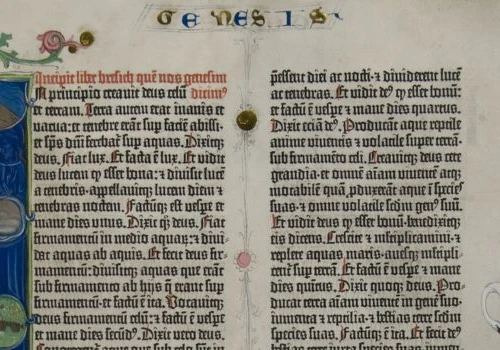 GENESIS
Incipit liber bresich quē nos genesim
In principio creauit deus celū dicim⁹
et terram. Terra autem erat inanis et
uacua: et tenebre erāt sup faciē abissi·
et spūs dñi ferebat̄ sup aquas. Dixitq;
deus. Fiat lux. Et facta ē lux. Et uidit
deus lucem q̄ esset bona: et diuisit lucē
a tenebris·appellauitq; lucem diem et
tenebras noctem. Factūq; est vespe et
mane dies vnus. Dixit q̄; deus. Fiat
firmamentū in medio aquar̄: et diui-
dat aquas ab aquis. Et fecit deus fir-
mamentū: diuisitq; aquas que erāt
sub firmamento ab hijs q̄ erant sup
firmamentū: et factū ē ita. Vocauitq;
deus firmamentū celū: et factū ē vespe
et mane dies secūd⁹. Dixit vero deus.
Congregent̄ aque que sub celo sūt in
p̄essent diei ac nocti·et diuiderent lucē
ac tenebras. Et uidit de⁹ q̄ esset bonū:
et factū ē vespe et mane dies quartus.
Dixit eciā de⁹. Producāt aque reptile
anime viuentis et volatile super terrā·
sub firmamēto celi. Creauitq; deus cete
grandia·et omnē aīam viuentē atq;
motabilē quā p̄duxerāt aque ī species
suas·et omne volatile scdm gen⁹ suū.
Et uidit deus q̄ esset bonū·benedixitq;
eis dicens. Crescite et multiplicamini·et
replete aquas maris·auesq; multipli-
cent̄ sup terrā. Et factū ē vespe et mane
dies quītus. Dixit quoq; deus. Pro-
ducat terra aīam viuentē in gene suo·
iumenta et reptilia·et bestias terre scdm
species suas. Factūq; ē ita. Et fecit de⁹
bestias terre iuxta species suas·iumen-